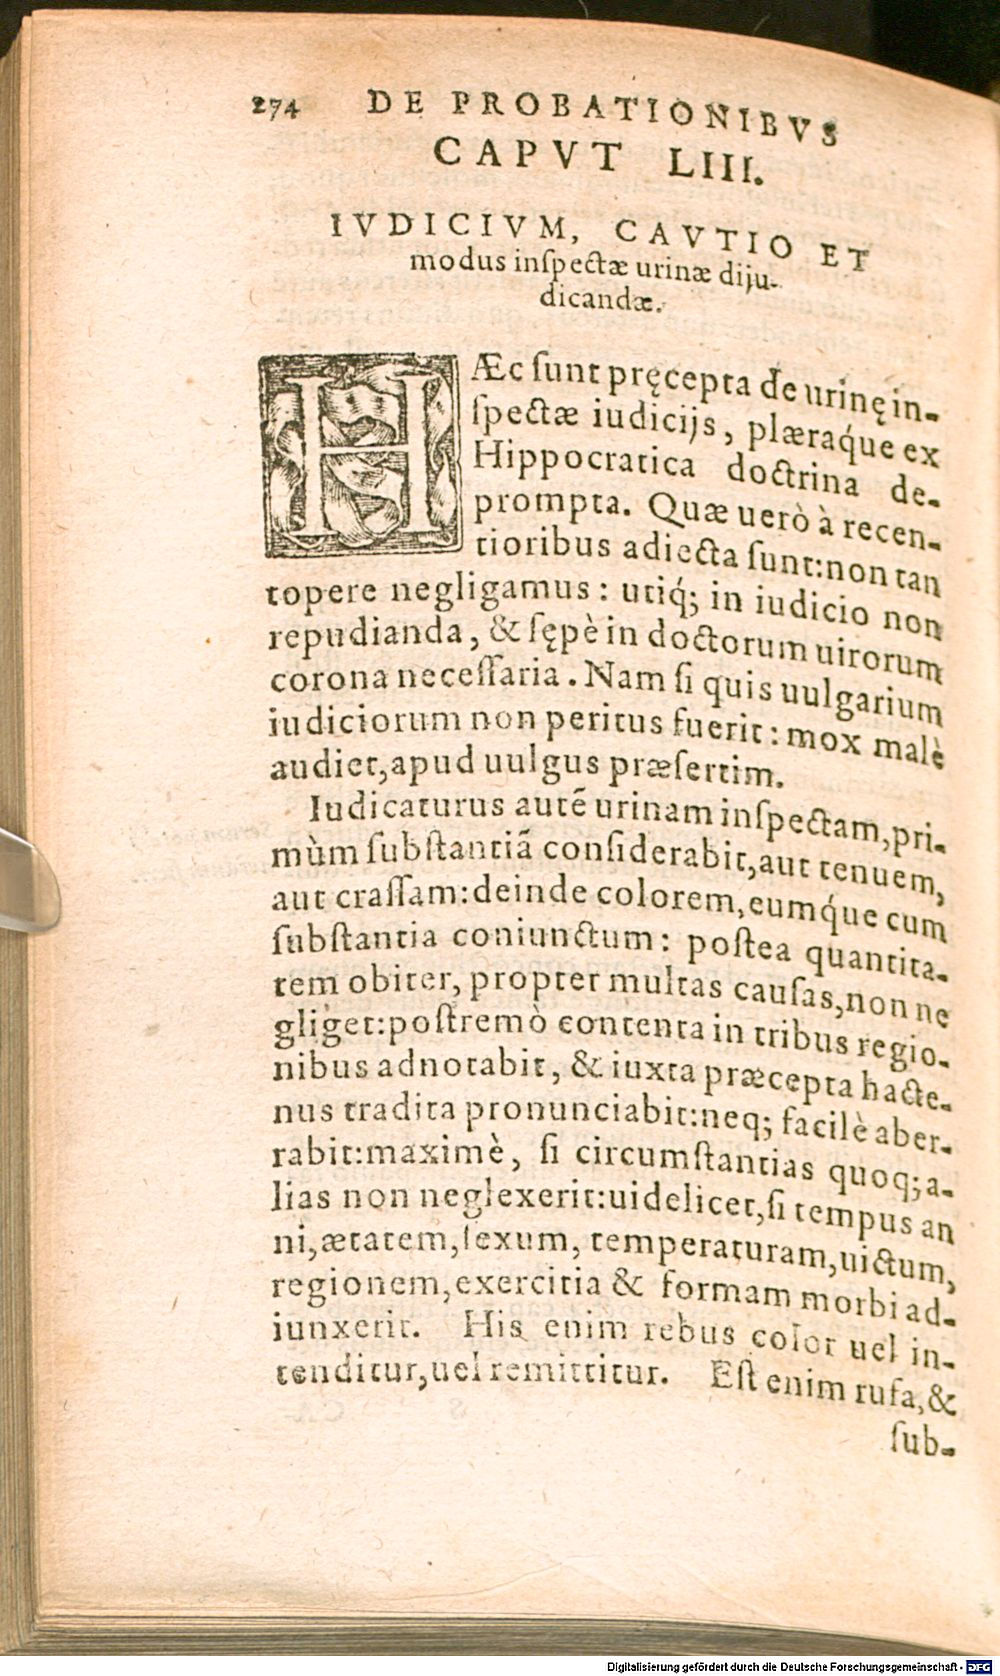 274 DE PROBATIONIBVS
CAPVT LIII.
IVDICIVM, CAVTIO ET
modus inſpectæ urinæ diju-
dicandæ.
HÆc ſunt pręcepta de urinę in-
ſpectæ iudicijs, plæraq́ue ex
Hippocratica doctrina de-
prompta. Quæ uerò à recen-
tioribus adiecta ſunt: non tan
topere negligamus: utiq́; in iudicio non
repudianda, & ſępè in doctorum uirorum
corona neceſſaria. Nam ſi quis uulgarium
iudiciorum non peritus fuerit: mox malè
audiet, apud uulgus præſertim.
Iudicaturus autẽ urinam inſpectam, pri-
mùm ſubſtantiã conſiderabit, aut tenuem,
aut craſſam: deinde colorem, eumq́ue cum
ſubſtantia coniunctum: poſtea quantita-
tem obiter, propter multas cauſas, non ne
gliget: poſtremò contenta in tribus regio-
nibus adnotabit, & iuxta præcepta hacte-
nus tradita pronunciabit: neq; facilè aber-
rabit: maximè, ſi circumſtantias quoq; a-
lias non neglexerit: uidelicet, ſi tempus an
ni, ætatem, ſexum, temperaturam, uictum,
regionem, exercitia & formam morbi ad-
iunxerit. His enim rebus color uel in-
tenditur, uel remittitur. Eſt enim rufa, &
ſub-
Digitalisierung gefördert durch die Deutsche Forschungsgemeinschaft - DFG